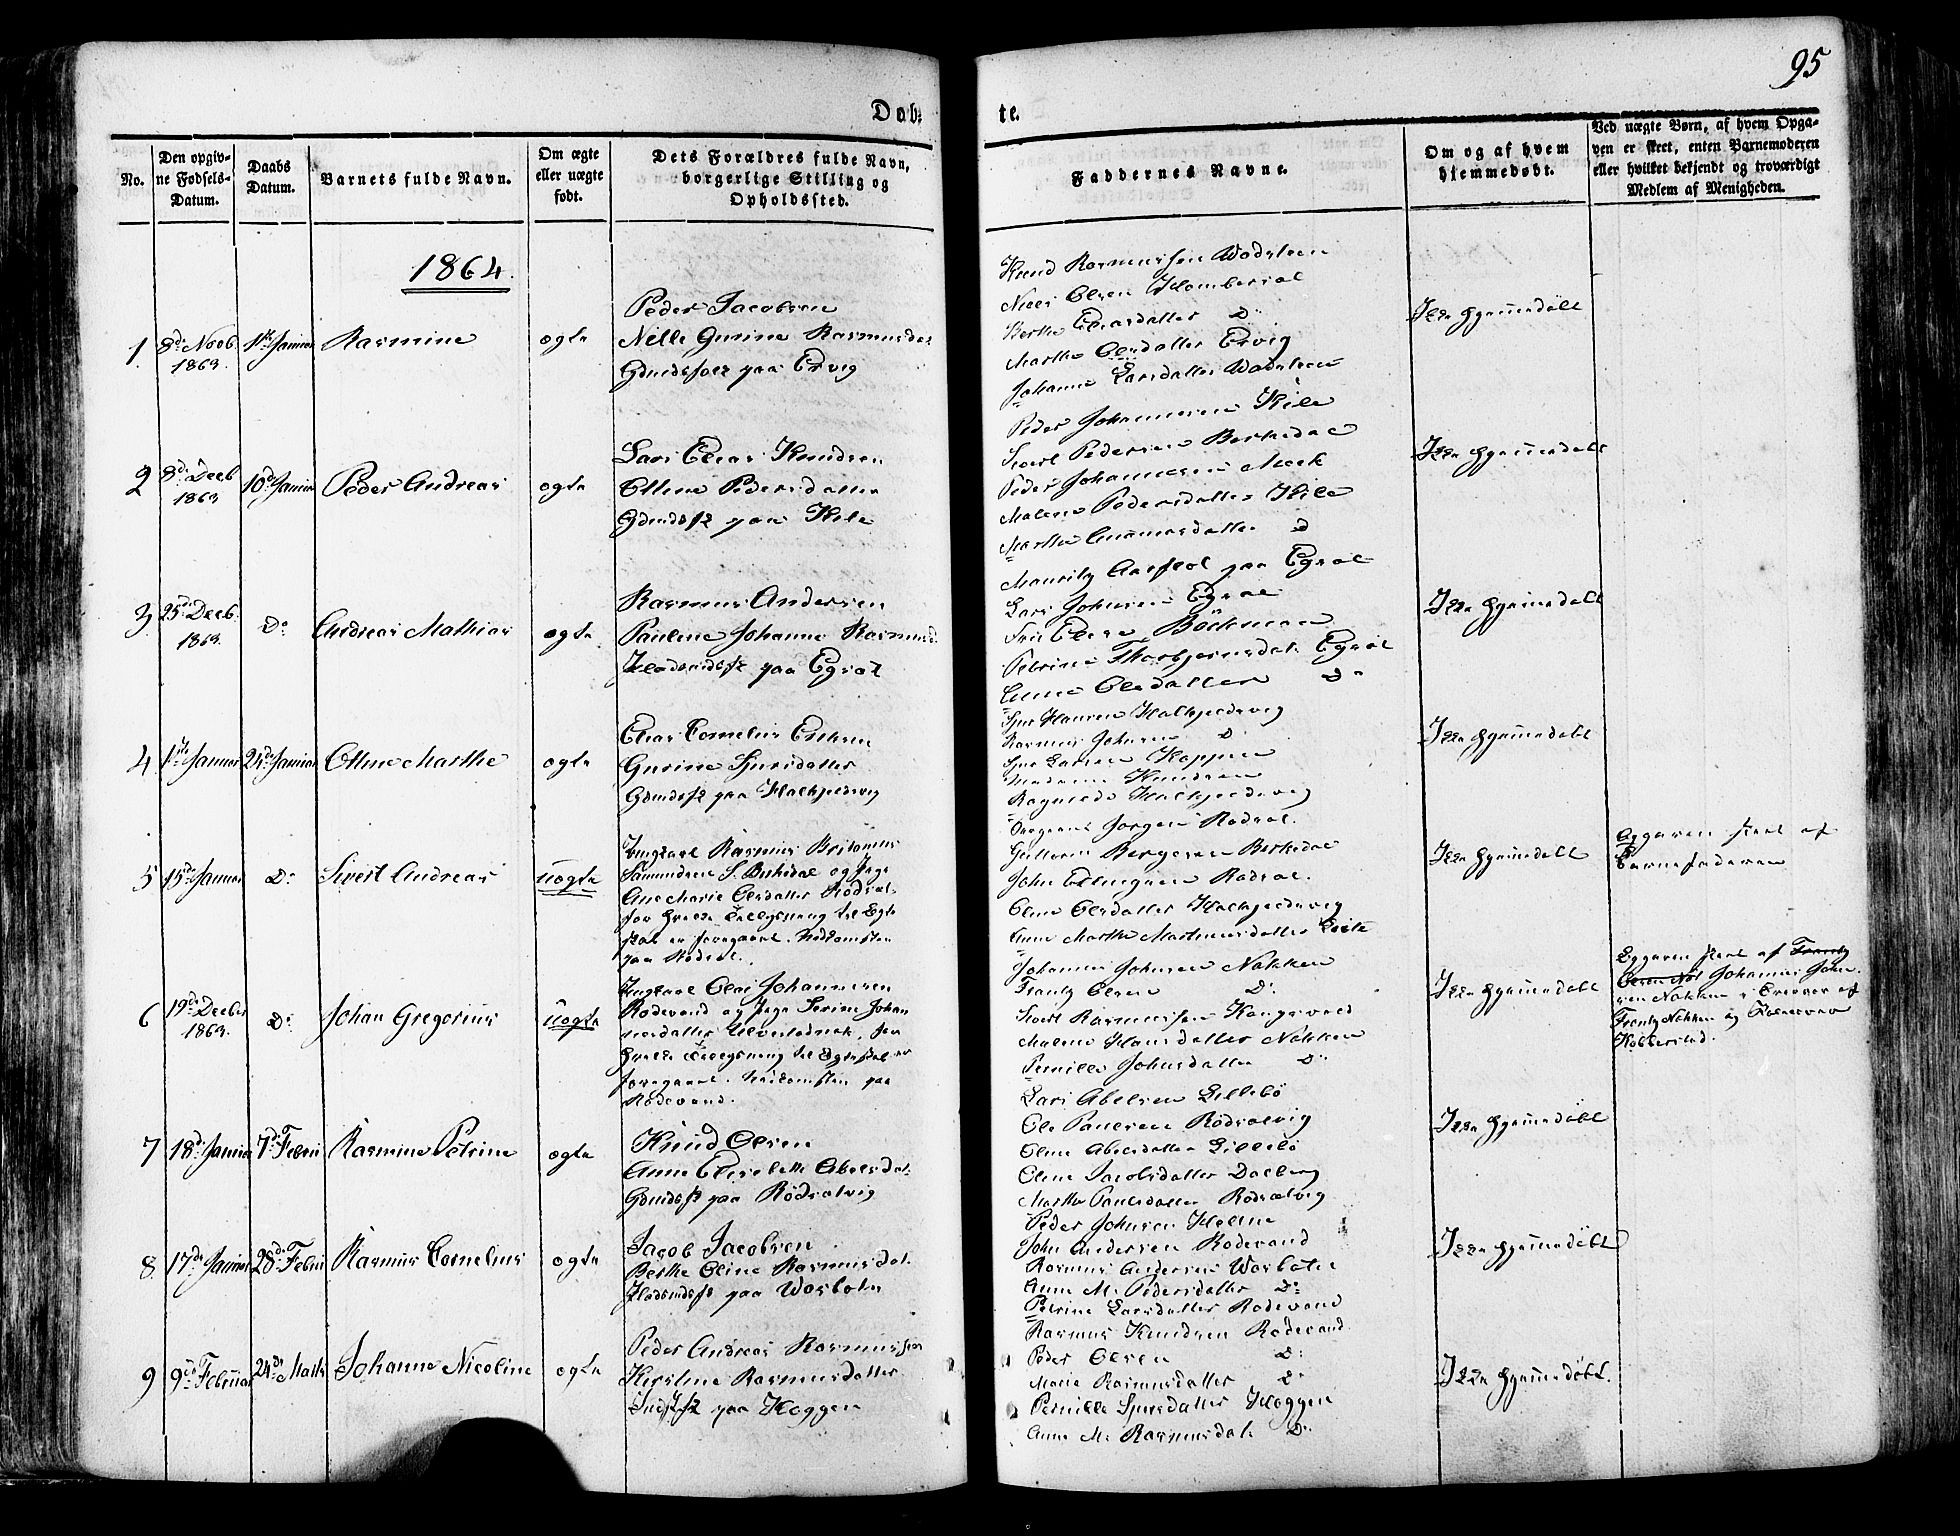 95
Døb-
te.
No.
Den opgivne Fødsels-Datum.
Daabs Datum.
Barnets fulde Navn.
Om ægte eller uægte født.
Dets Forældres fulde Navn, borgerlige Stilling og Opholdssted.
Faddernes Navne.
Om og af hvem hjemmedøbt.
Ved uægte Børn, af hvem Opgaven er skeet, enten Barnemoderen eller hvilket bekjendt og troværdigt Medlem af Menigheden.
1864.
1 8de Novb 1863. 1ste Januar Rasmine ægte
Peder Jacobsen
Nille Gurine Rasmusdat
Gdmdsfolk paa Ervig
Knud Rasmussen Vodsteen
Niels Olsen
Berthe Eliasdatter Do
Marthe Olesdatter Ervig
Johanne Larsdatter Vodsteen
Ikke hjemmedøbt
2 8de Decb 1863 10de Januar Peder Andreas ægte
Lars Elias Knudsen
Olline Pedersdatter
Gdmdsfk paa Kile
Peder Johannesen Kile
Sivert Pedersen Berkedal
Peder Johannesen Moek
Malene Pedersdatter Kile
Marthe Gunnarsdatter D
Ikke hjemmedøbt
3 25de Decb. 1863. Do Andreas Mathias ægte
Rasmus Andersen
Pauline Johanne Rasmusd
paa Egsæt
Mauritz Aarflot paa Egsæt
Lars Johnsen Egsæt
Elias Böckman
Petrine Thorbjørnsdat. Egsæt
Anne Olesdatter Do
Ikke hjemmedøbt
4 1ste Januar 24de Januar Olline Marthe ægte
Elias Cornelius
Gurine Sjursdatter
Gdmdsfk paa Halkjelsvig
Sjur Hansen Halkjelsvig
Rasmus Johnsen D.
Sjur Larsen Koppen
Knudsen
Ragnilde Halkjelsvig
Ikke hjemmedøbt
5 15de Januar Do Sivert Andreas uægte
Ungkarl Rasmus
S. Birkedal og Pige
Ane Marie Olesdatter Rødsæt
for hvilke Trelysning til Ægte
skab er foregaaet. Nedkomsten
paa Rødsæt.
Jørgen Rødsæt.
Guttorm Bergesen Berkedal
John Ellingsen Rødsæt.
Oline Olesdatter Halkjelsvig
Anne Marthe Martinusdatter
Ikke hjemmedøbt
Opgaven skeet af
Barnefaderen
6 19de Decbr 1863. Do Johan Gregorius uægte
Ungkarl Johannesen
Rødevand og Pige Serine Johan
nesdatter, for
hvilke Trelysning til Ægteskab er
foregaaet. Nedkomsten paa
Rødevand.
Johannes Johnsen Nakken
Frantz Olsen Do
Sivert Rasmussen
Malene Hansdatter Nakken
Pernille Johnsdatter Do
Ikke hjemmedøbt
Opgaven skeet af Frantz
Johannes John
sen Nakken i Nærvær af
Frantz Nakken og
Kobberstad.
7 18de Januar 7de Febru Rasmine Petrine ægte
Knud Olsen
Anne Elisebette Abelsdat.
Gdmdsfk paa Rødsætvig
Lars Abelsen Lillebö
Ole Paulsen Rødsætvig
Oline Abelsdatter Lillebö
Oline Jacobsdatter Dalberg
Marthe Paulsdatter Rødsætvig
Ikke hjemmedøbt
8 17de Januar 28de Febru Rasmus Cornelius ægte
Jacob Jacobsen
Berthe Oline Rasmusdat.
paa
Peder Johnsen Holme
John Andersen Rødevand
Rasmus Andersen
Anne M. Pedersdatter Do
Petrine Larsdatter Rødevand
Ikke hjemmedøbt
9 9de Februar 24de Marts Johanne Nicoline ægte
Peder Andreas Rasmussen
Kirstine Rasmusdatter
Indstfk paa Hoggen
Rasmus Knudsen Rødevand
Peder Olsen Do
Marie Rasmusdatter Do
Pernille Sjursdatter Hoggen
Anne M. Rasmusdat. Do
Ikke hjemmedøbt.